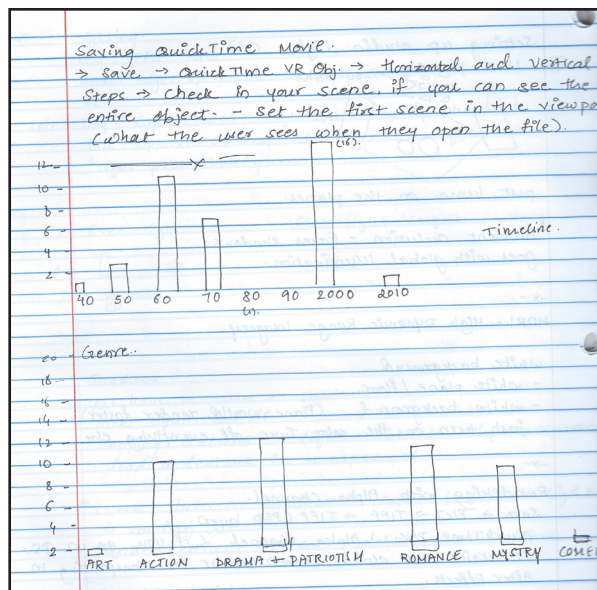 Saving QuickTime Movie.
→ Save → QuickTime VR Obj. → Horizontal and Vertical
Steps → Check in your scene, if you can see the
entire object. - Set the first scene in the viewpo
(what the user sees when they open the file).
12
10
8
6
4
2
(16).
Timeline.
40 50 60 70 80 90 2000 2010
(1).
20 - Genre..
18
16
14
12
10
8
6
4
2
ART ACTION DRAMA + PATRIOTISM ROMANCE MYSTRY COMED